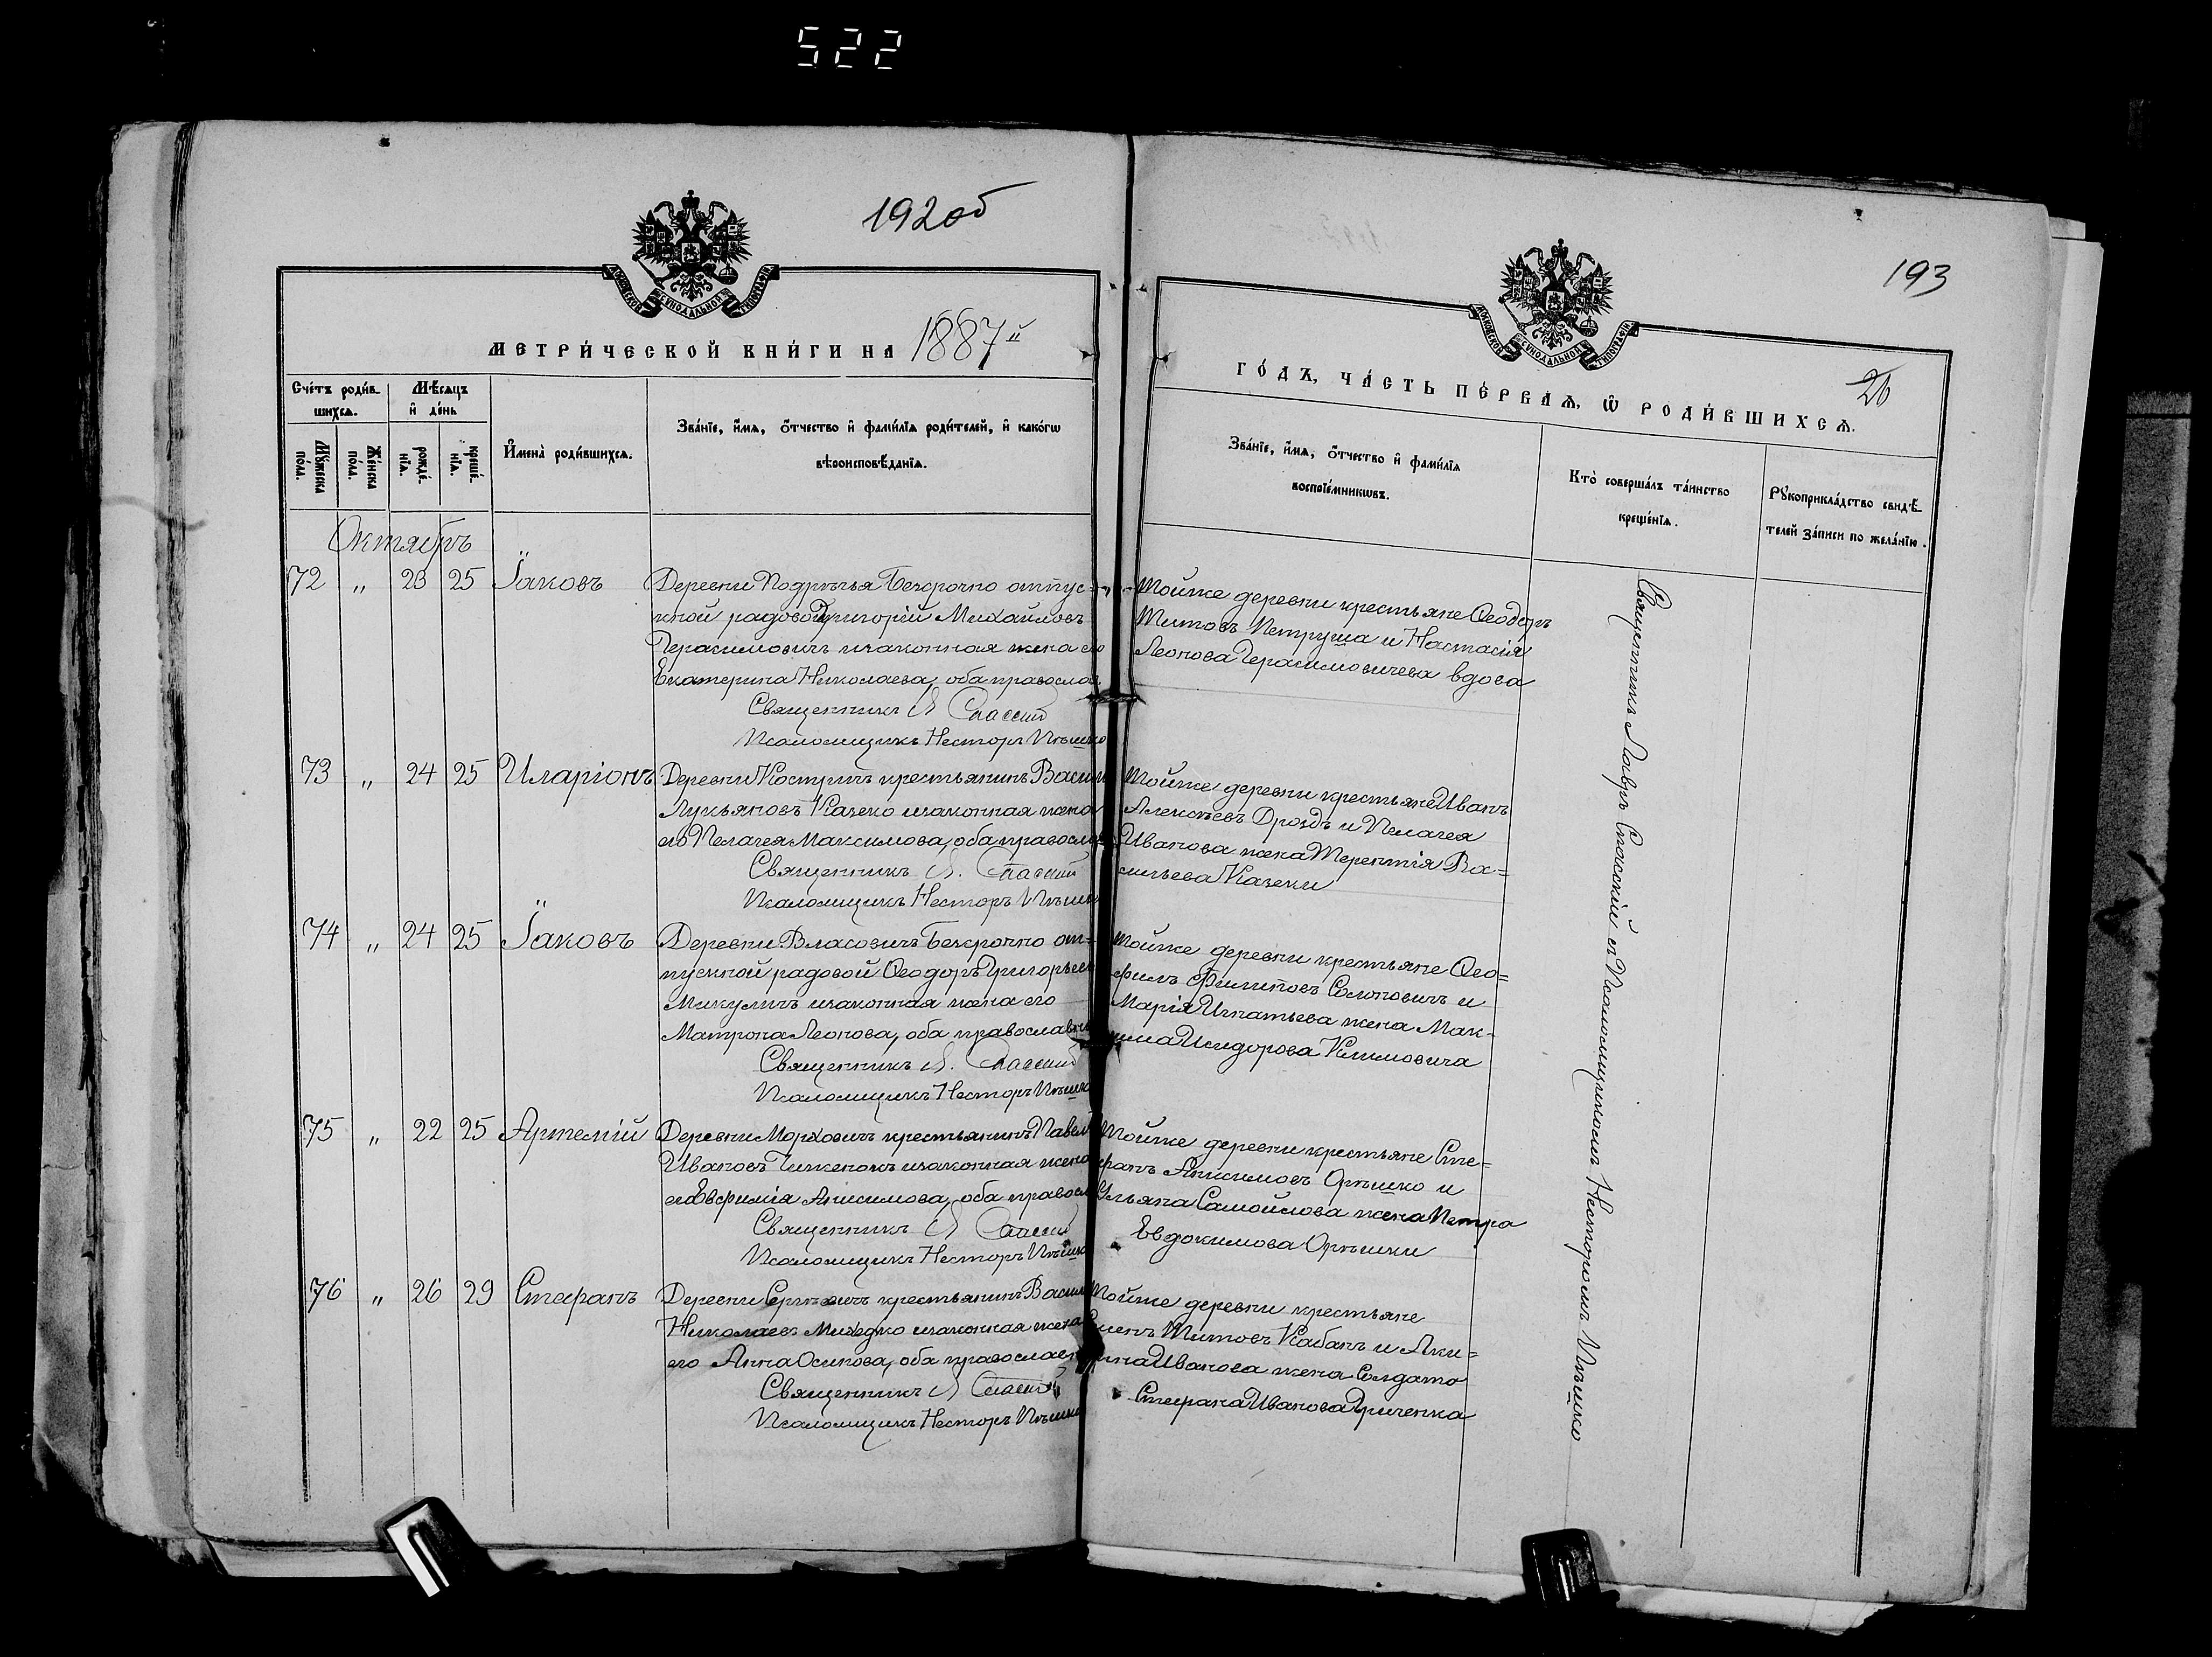 522
192 об
193
МОСКОВСКОЙ СѴНОДАЛЬНОЙ ТИПОГРАФІИ
МОСКОВСКОЙ СѴНОДАЛЬНОЙ ТИПОГРАФІИ
МЕТРИ́ЧЕСКОЙ КНИ́ГИ НА 1887й
ГО́ДЪ, ЧА́СТЬ ПЕ́РВАѦ, Ѡ҆ РОДИ́ВШИХСѦ.
26
Сче́тъ роди́в
шихсѧ.
Мѣ́сѧцъ
и҆ де́нь
Мꙋ́жеска
по́ла.
Же́нска
по́ла.
рожде́
нїѧ.
креще́
нїѧ.
И҆мена̀ роди́вшихсѧ.
Зва́нїе, и҆́мѧ, ѻ҆́тчество и҆ фами́лїѧ роди́телей, и҆ како́гѡ
вѣроисповѣ́данїѧ.
Зва́нїе, и҆́мѧ, ѻ҆́тчество и҆ фами́лїѧ
воспрїе́мникѡвъ.
Кто̀ соверша́лъ та́инство
креще́нїѧ.
Рꙋкоприкла́дство свидѣ́
телей за́писи по жела́нїю.
Октябрь
72 " 23 25 Іаковъ Деревни Подрѣчья Безсрочно отпус-
кной рядовой Григорій Михайловъ
Герасимовичъ изаконная жена его
Екатерина Николаева, оба православ.
Священникъ Л Спасскій
Псаломщикъ Несторъ Пѣшко
Тойже деревни крестьяне Ѳеодоръ
Титовъ Петруша и Настасія
Леонова Герасимовичева вдова
73 " 24 25 Иларіонъ Деревни Костричъ крестьянинъ Васил
Лукьяновъ Казеко изаконная жена
его Пелагея Максимова, оба правосла
Священникъ Л. Спасскій
Псаломщикъ Несторъ Пѣшко
Тойже деревни крестьяне Иванъ
Алексѣевъ Дроздъ и Пелагея
Иванова жена Терентія Ва=
сильева Казеки
74 " 24 25 Іаковъ Деревни Власовичъ Безсрочно от=
пускной рядовой Ѳеодоръ Григорьев
Микуличъ изаконная жена его
Матрона Леонова, оба православн
Священникъ Л. Спасскій
Псаломщикъ Несторъ Пѣшко
Тойже деревни крестьяне Ѳео=
филъ Филиповъ Солоновичъ и
Марія Игнатьева жена Мак-
сима Исидорова Климовича
75 " 22 25 Артемій Деревни Морховичъ крестьянинъ Павелъ
Ивановъ Чиженокъ изаконная жена
его Евфимія Анисимова, оба правосл
Священникъ Л Спасскій
Псаломщикъ Несторъ Пѣшко
Тойже деревни крестьяне Сте=
фанъ Анисимовъ Орѣшко и
Ульяна Самойлова жена Петра
Евдокимова Орѣшки
76 " 26 29 Стефанъ Деревни Сергѣевичъ крестьянинъ Васил
Николаевъ Михедко изаконная жена
его Анна Осипова, оба православн
Священникъ Л Спасскій
Псаломщикъ Несторъ Пѣшко
Тойже деревни крестьяне
Титовъ Кабанъ и Аки=
лина Иванова жена Солдата
Стефана Иванова Гриченка
Священникъ Лавръ Спасскій съ Псаломщикомъ Несторомъ Пѣшко